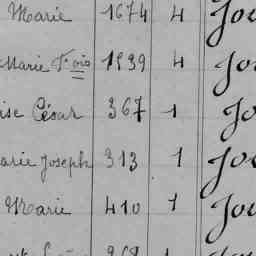 Marie 1674 4 Jou
Marie Fois 1939 4 Jou
ise César 367 1 Jo
arie Joseph 313 1 Jou
Marie 410 1 Jou